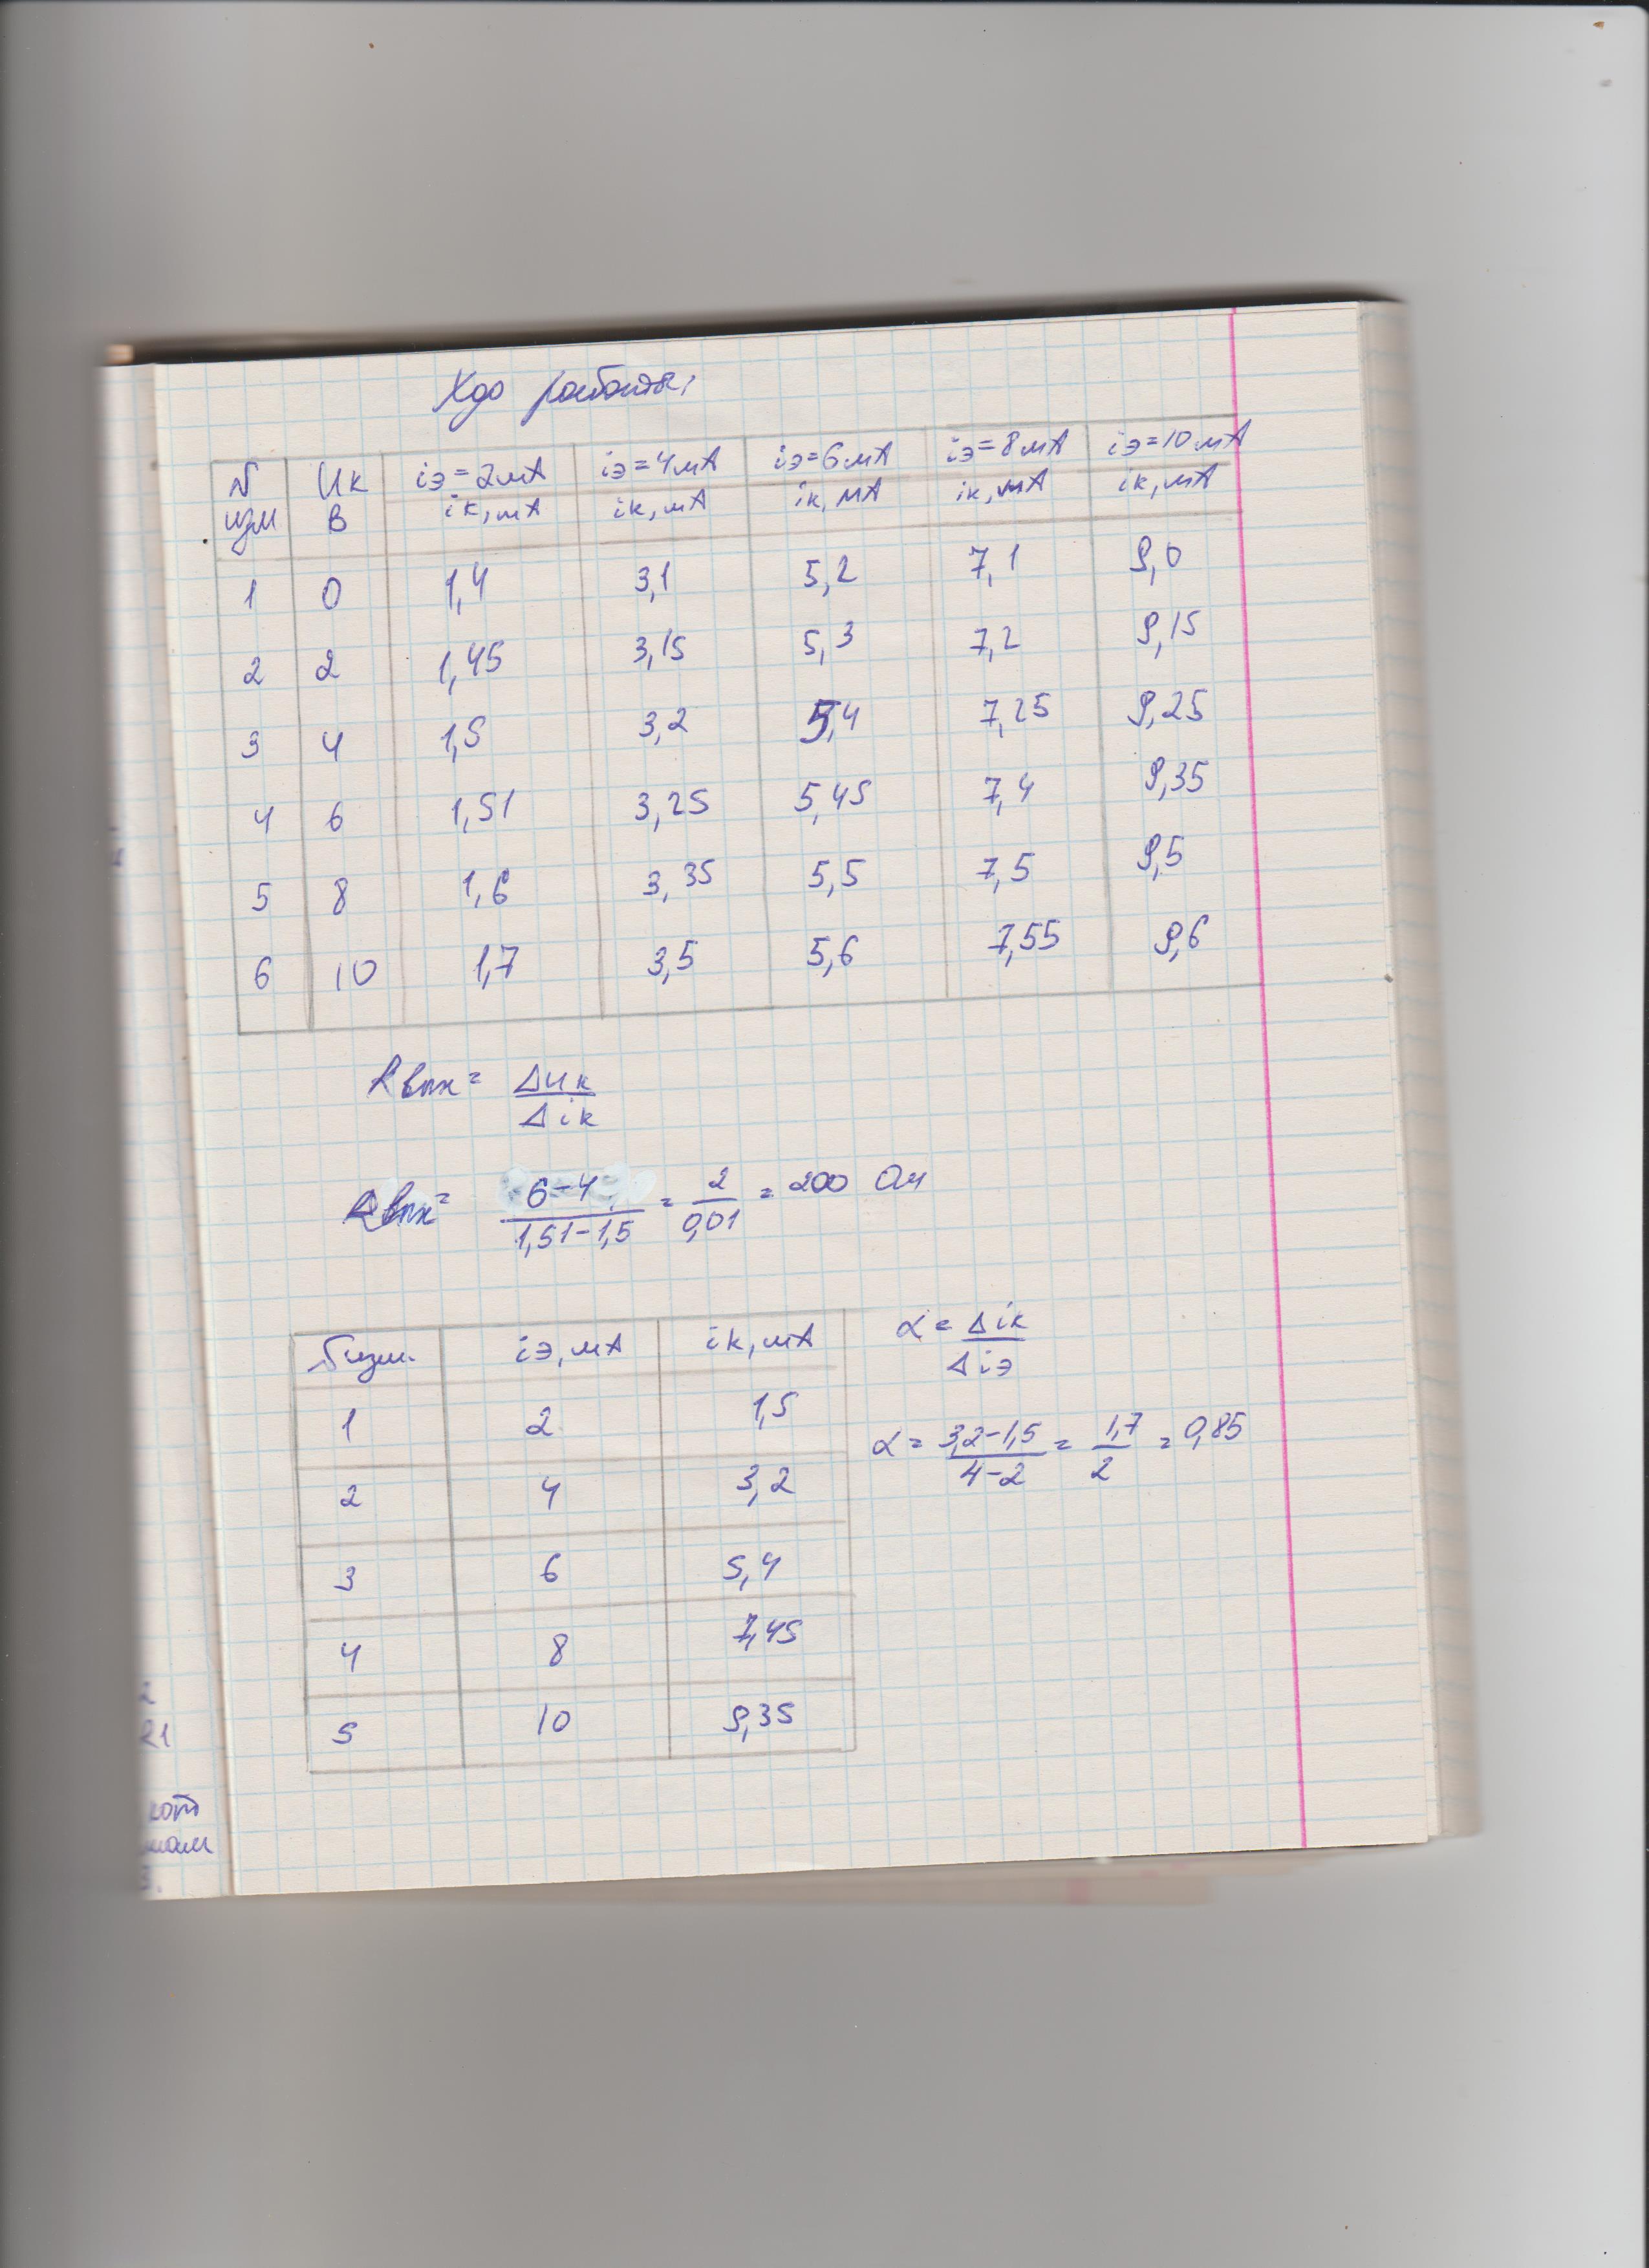 Ходо работы:
N Uк iэ=2мА iэ=4мА iэ=6мА iэ=8мА iэ=10мА
изм В iк,мА iк,мА iк,мА iк,мА iк,мА
1 0 1,4 3,1 5,2 7,1 9,0
2 2 1,45 3,15 5,3 7,2 9,15
3 4 1,5 3,2 5,4 7,25 9,25
4 6 1,51 3,25 5,45 7,4 9,35
5 8 1,6 3,35 5,5 7,5 9,5
6 10 1,7 3,5 5,6 7,55 9,6
Rвых = Δuк / Δiк
Rвых = 6-4 / 1,51-1,5 = 2 / 0,01 = 200 Ом
N изм. iэ,мА iк,мА
1 2 1,5
2 4 3,2
3 6 5,4
4 8 7,45
5 10 9,35
α = Δiк / Δiэ
α = 3,2-1,5 / 4-2 = 1,7 / 2 = 0,85
R1